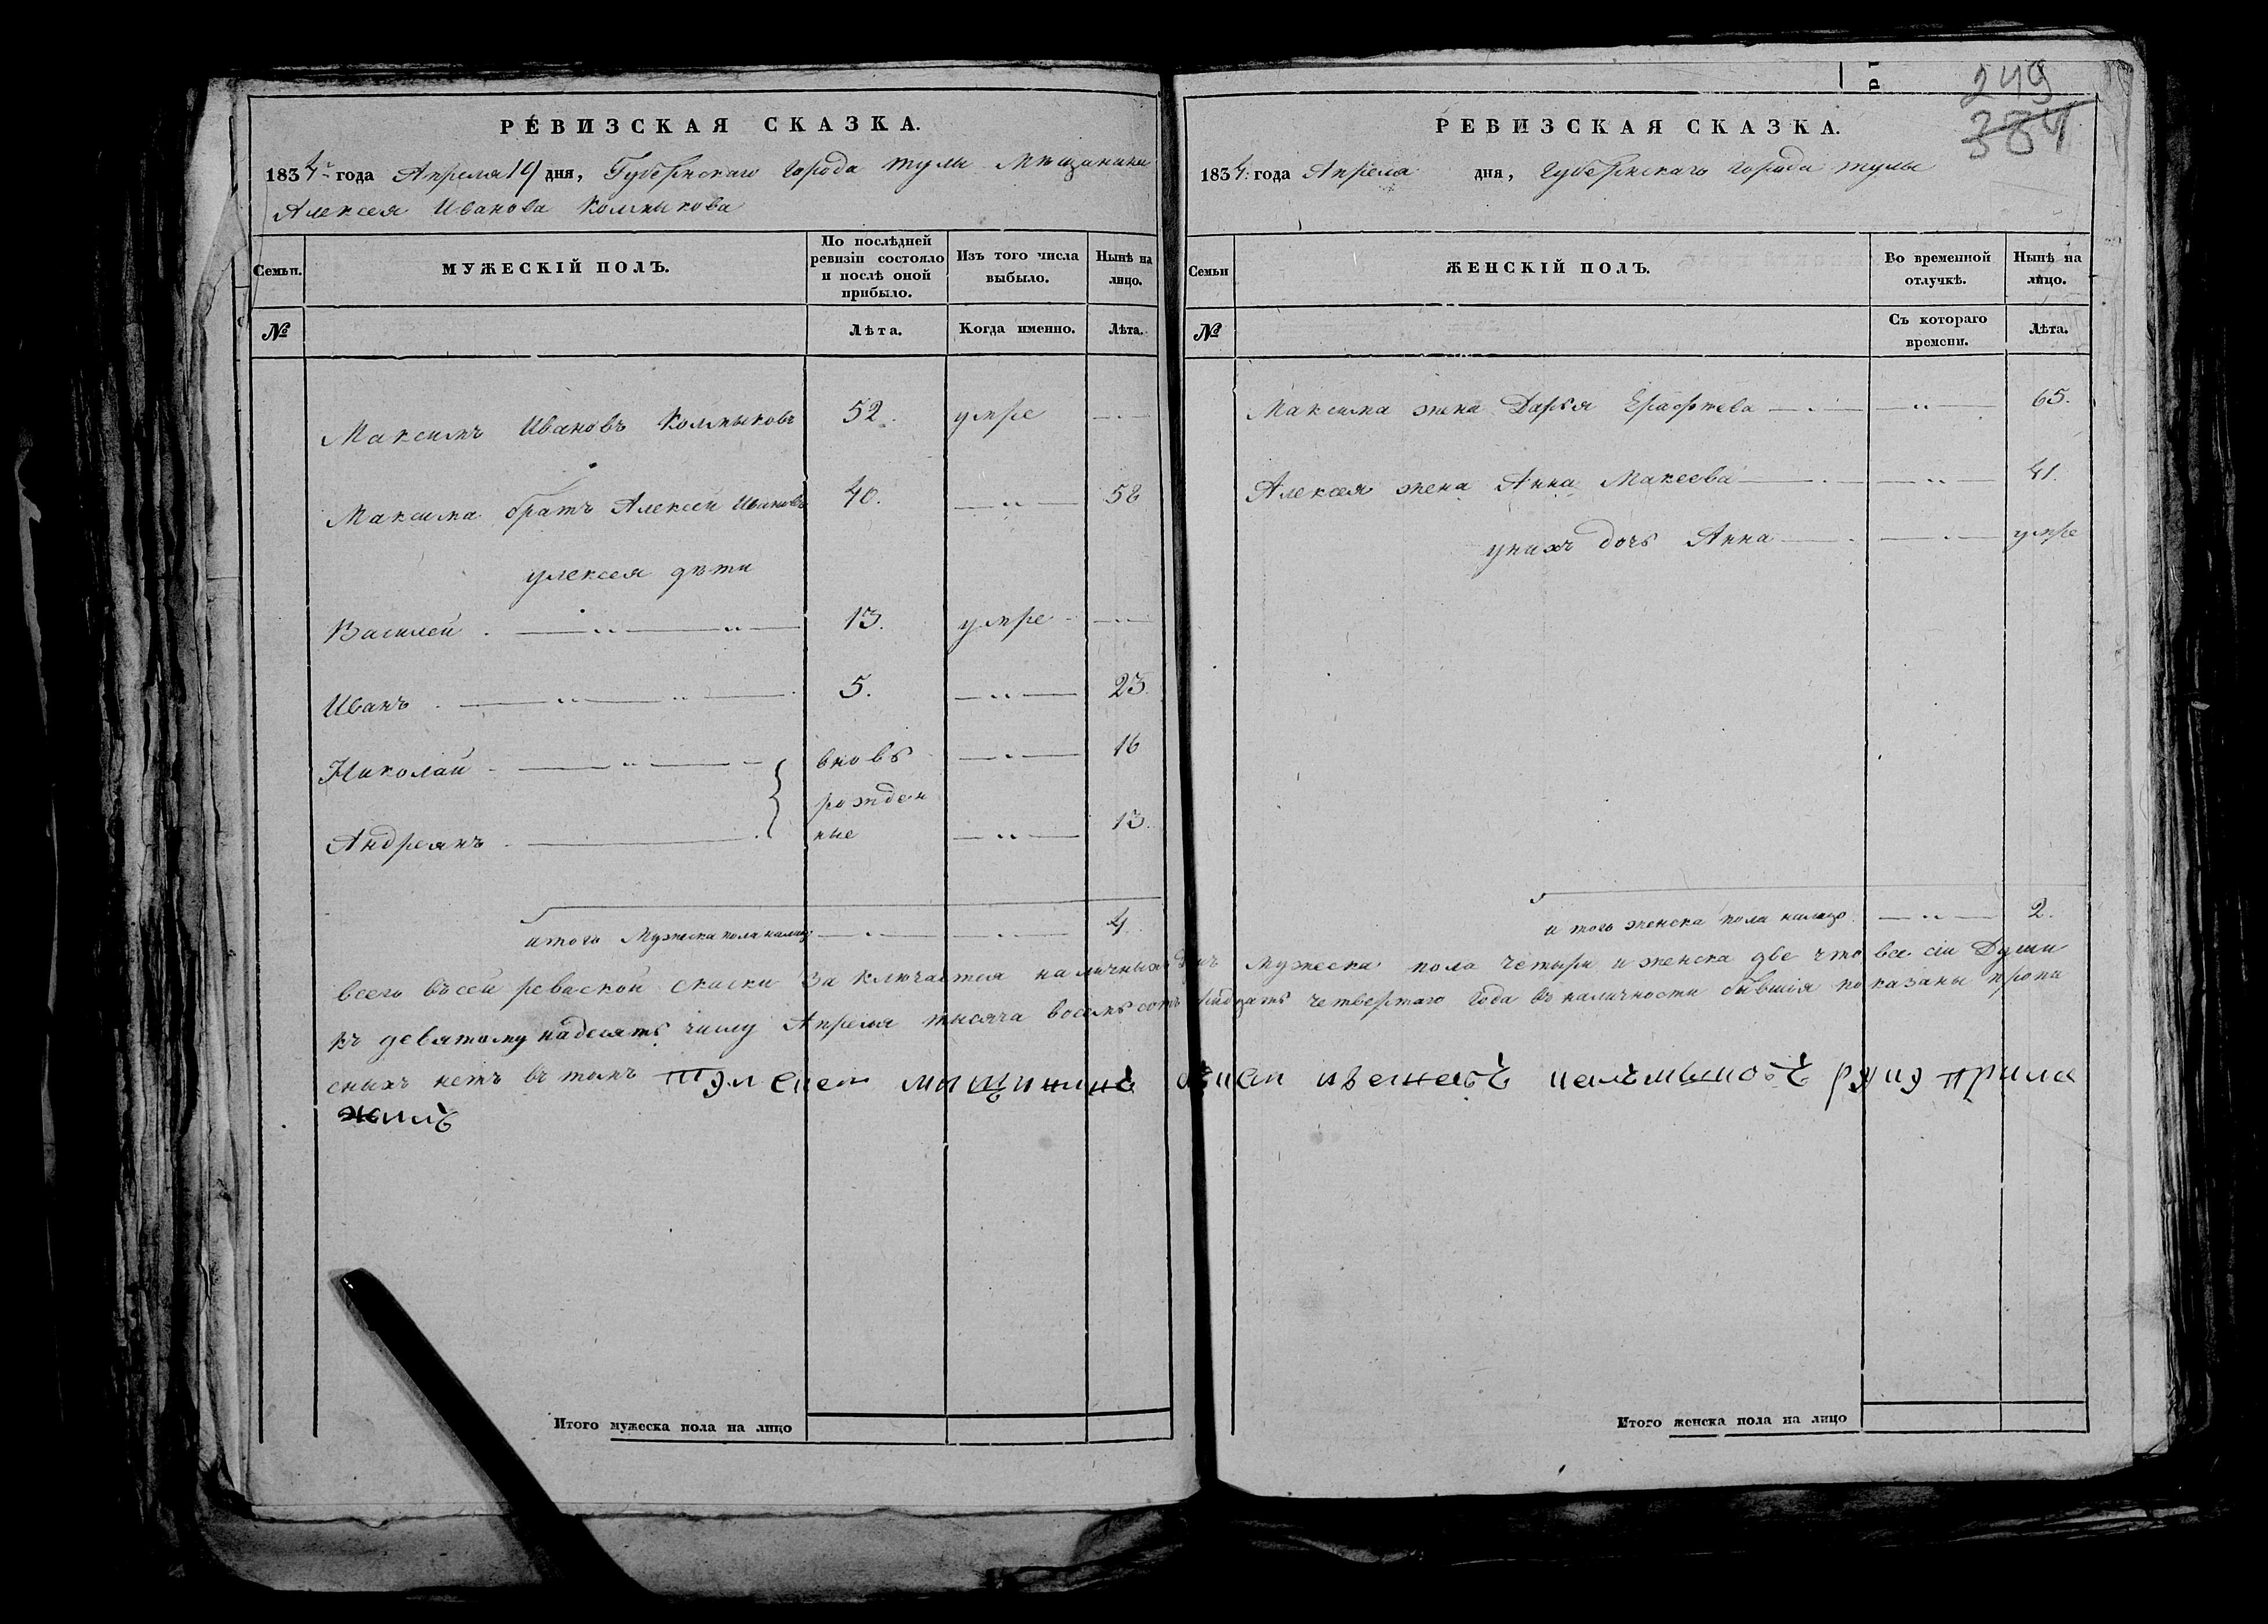 249
384
РЕВИЗСКАЯ СКАЗКА.
1834 года Апреля 19 дня, Губернскаго города тулы Мещанина
Алексея Иванова Колмыкова
Семьи.
МУЖЕСКІЙ ПОЛЪ.
По послѣдней ревизіи состояло и послѣ оной прибыло.
Изъ того числа выбыло.
Нынѣ на лицо.
№
Лѣта.
Когда именно.
Лѣта.
Максимъ Ивановъ Колмыковъ 52. умре
Максима братъ Алексей Ивановъ 40. 58
уалексея дѣти
Василей 13. умре
Иванъ 5. 23
Николай вновь 16
рожден
Андреянъ ные 13.
итого Мужеска пола налицо 4
РЕВИЗСКАЯ СКАЗКА.
1834. года Апреля дня, Губернскаго города тулы
Семьи
ЖЕНСКІЙ ПОЛЪ.
Во временной отлучкѣ.
Нынѣ на лицо.
№
Съ котораго времени.
Лѣта.
Максима жена Дарья 65.
Алексея жена Анна Макеева 41.
унихъ дочь Анна умре
итого женска пола налицо 2.
всего въсей ревиской скаски заключается наличныхъ мужеска пола четыри и женска две что все сіи Души
къ девятому надесять числу Апреля тысяча восемьсотъ четвертаго года въ наличности бывшія показаны пропи
сныхъ нетъ въ томъ руку прила
жилъ
Итого мужеска пола на лицо
Итого женска пола на лицо